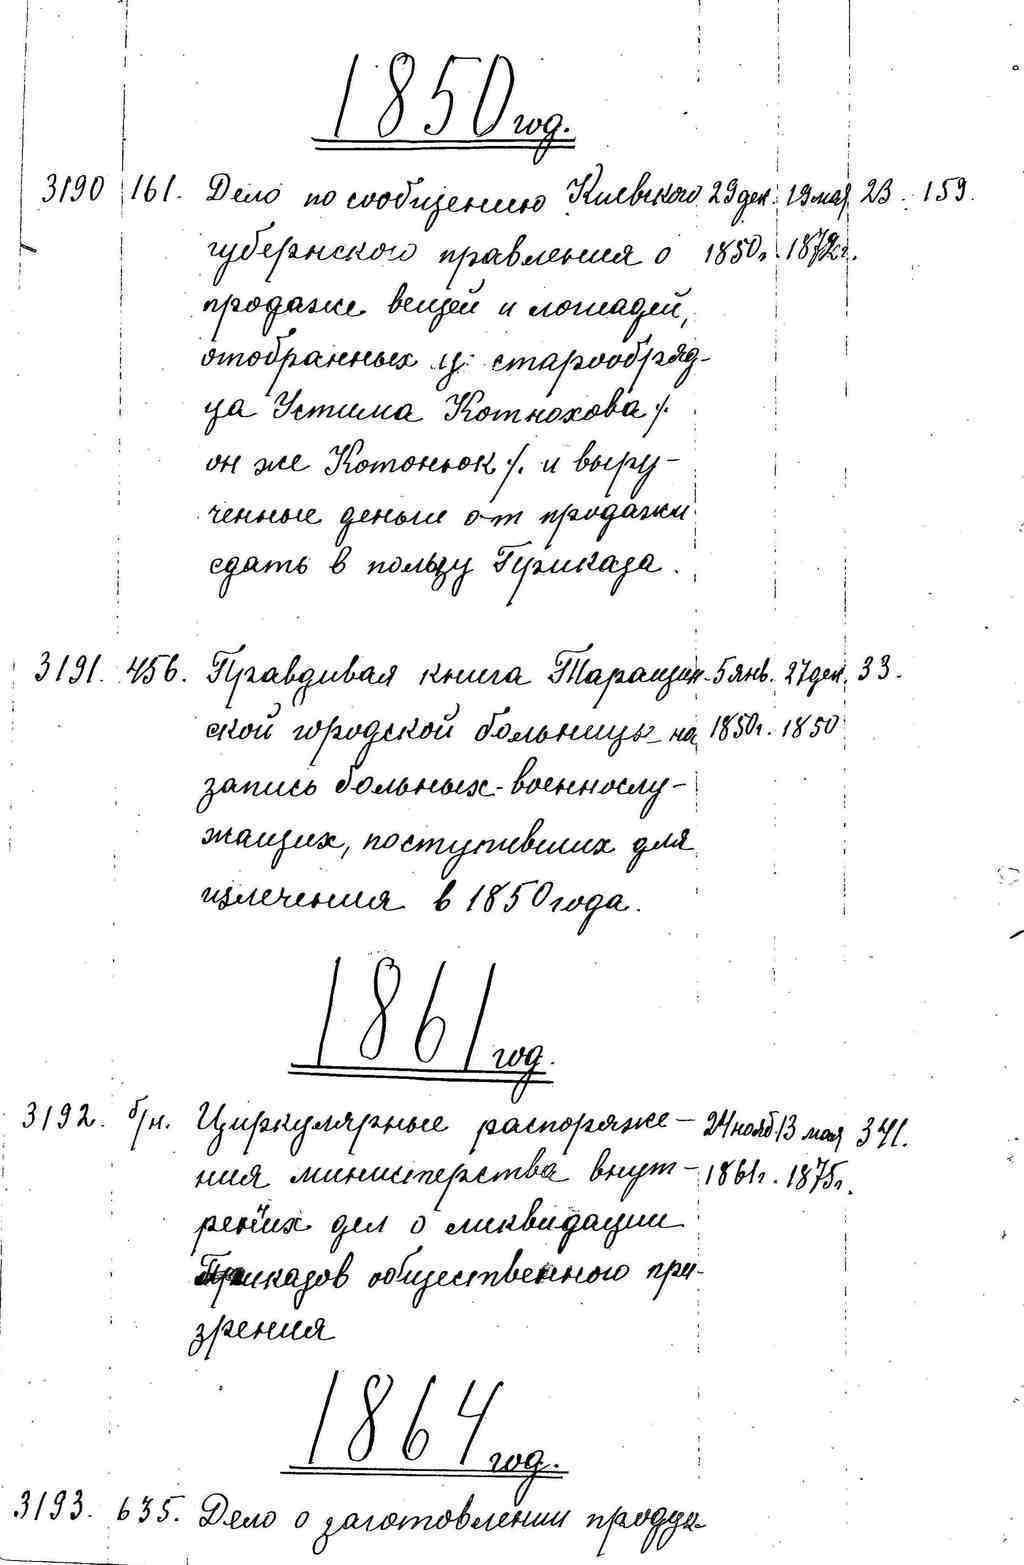 1850 год.
3190 161. Дело по сообщению Киевского 29 дек. 19 мая 23. 159.
губернского правления о 1850г. 1872г.
продаже вещей и лошадей,
отобранных у старообряд-
ца Устима Котнохова /.
он же Котонюк /. и выру-
ченные деньги от продажи
сдать в пользу Приказа.
3191. 456. Правдивая книга Таращан- 5 янв. 27 дек. 33.
ской городской больницы на 1850г. 1850
запись больных-военнослу-
жащих, поступивших для
излечения в 1850 года.
1861 год.
3192. б/н. Циркулярные распоряже- 24 нояб. 13 мая 341.
ния министерства внут- 1861г. 1875г.
рених дел о ликвидации
Приказов общественного при-
зрения
1864 год.
3193. 635. Дело о заготовлении продук-